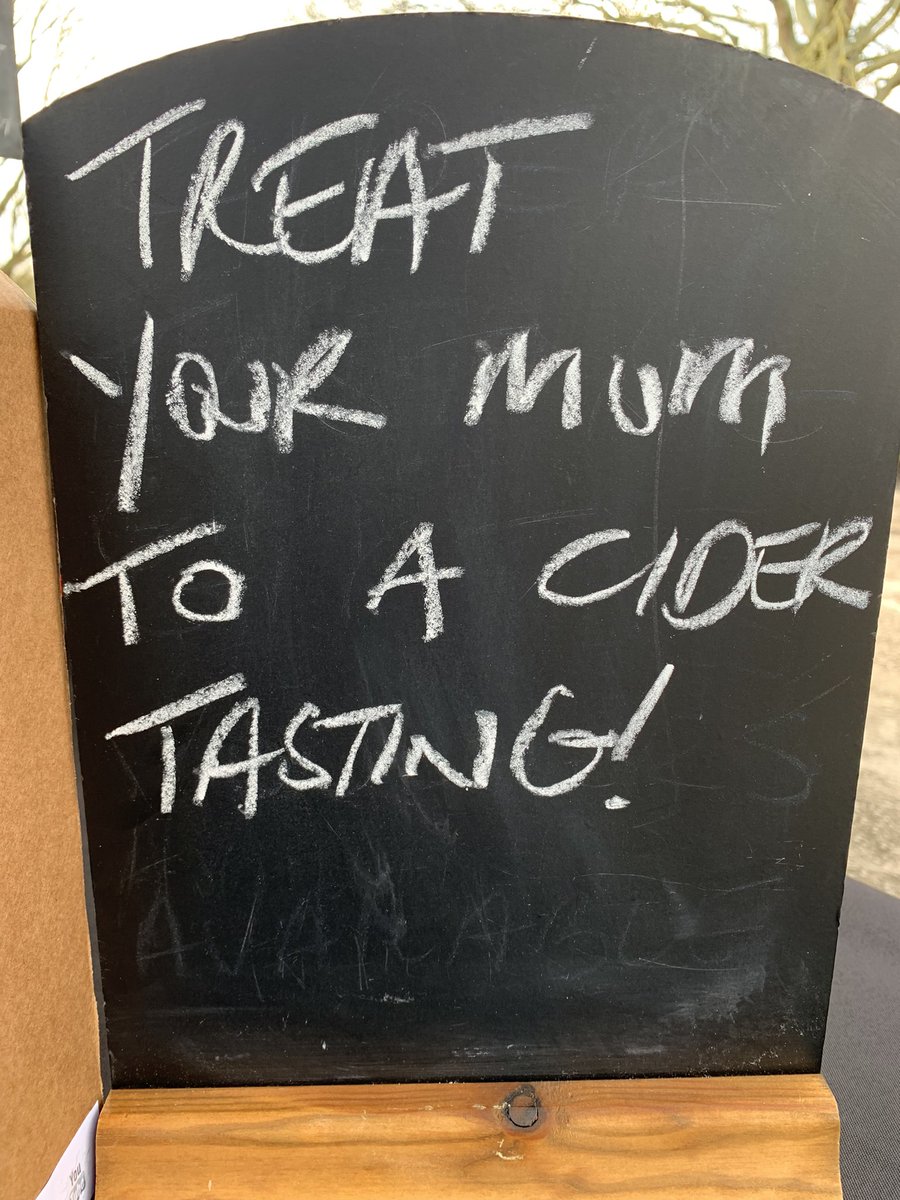 TREAT
YOUR MUM
TO A CIDER
TASTING!